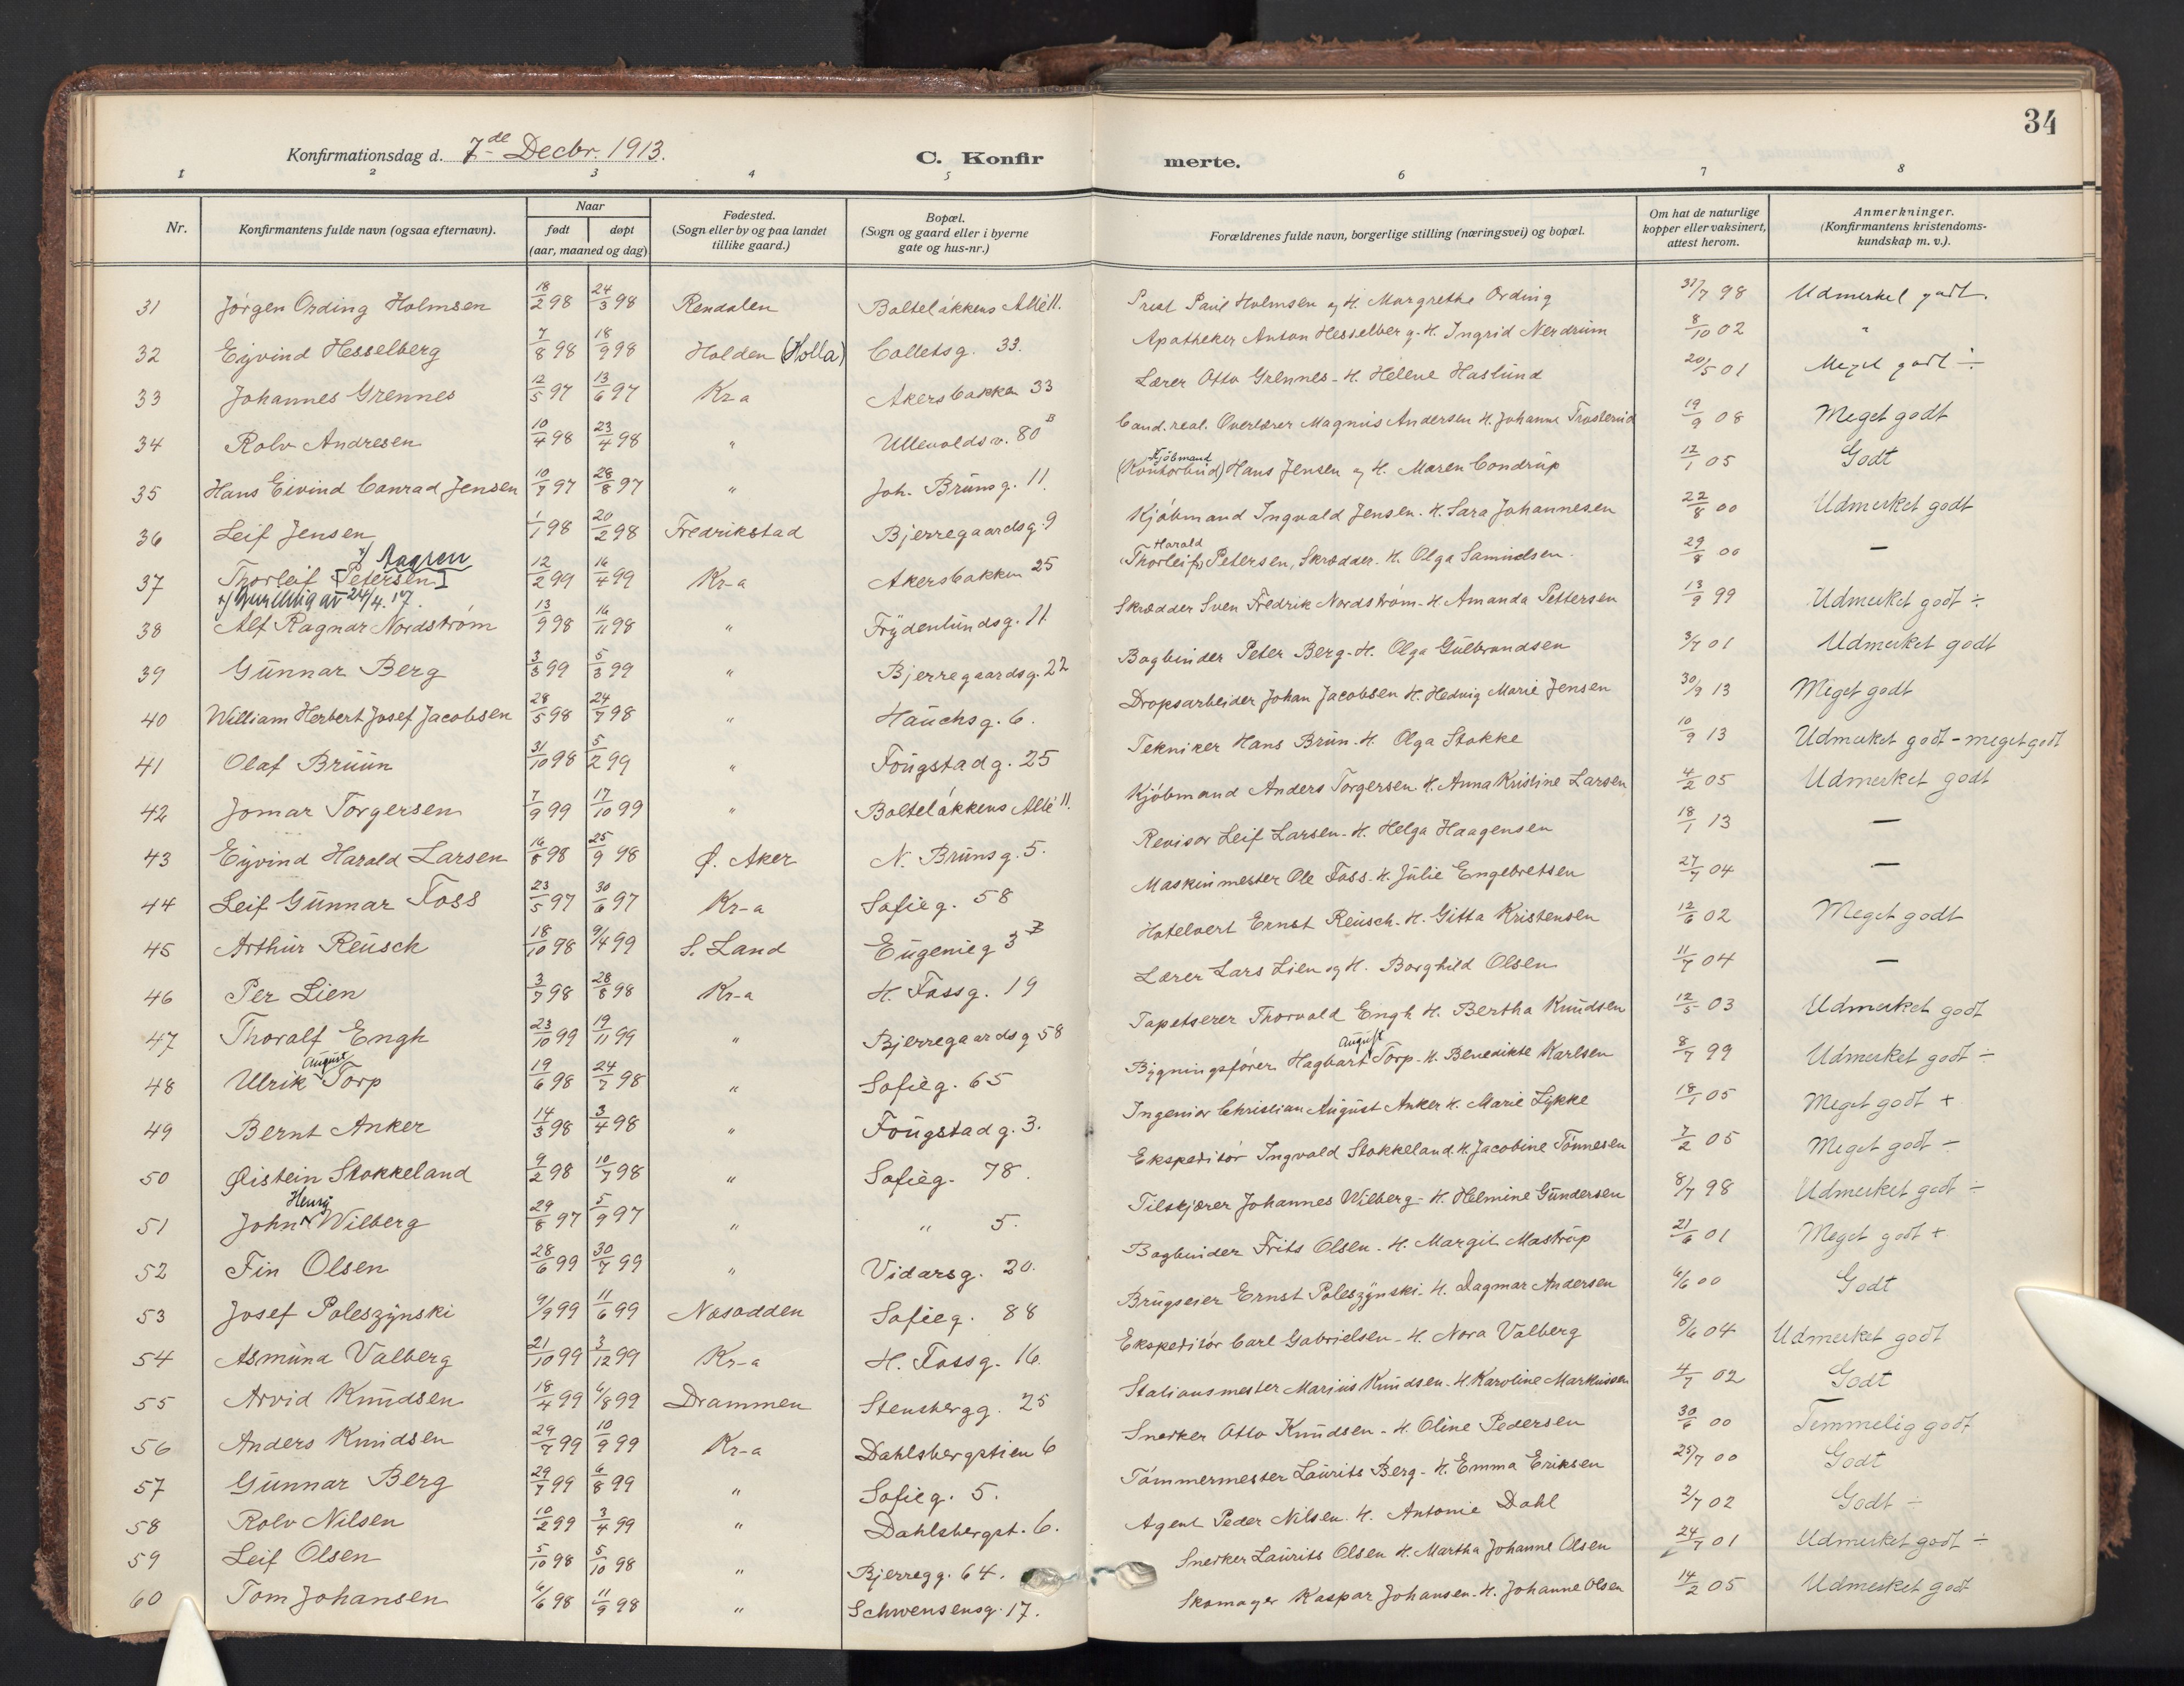 34
Konfirmationsdag d. 7de Decbr. 1913. C. Konfir merte.
1 2 3 4 5 6 7 8
Nr. Konfirmantens fulde navn (ogsaa efternavn). Naar født døpt (aar, maaned og dag) Fødested. (Sogn eller by og paa landet tillike gaard.) Bopæl. (Sogn og gaard eller i byerne gate og hus-nr.) Forældrenes fulde navn, borgerlige stilling (næringsvei) og bopæl. Om hat de naturlige kopper eller vaksinert, attest herom. Anmerkninger. (Konfirmantens kristendoms-kundskap m. v.).
31 Jörgen Ording Holmsen 18/2 98 24/3 98 Rendalen Boltelökkens Allé 11. Prest Paul Holmsen og H. Margrethe Ording 31/7 98 Udmerket godt.
32 Eyvind Hesselberg 7/8 98 18/9 98 Holden (Holla) Colletsg. 33. Apotheker Anton Hesselberg - H. Ingrid Nerdrum 8/10 02 "
33 Johannes Grennes 12/5 97 13/6 97 Kr-a Akersbakken 33 Lærer Otto Grennes - H. Helene Haslund 20/5 01 Meget godt ÷
34 Rolv Andresen 10/4 98 23/4 98 " Ullevoldsv. 80 B Cand. real. Overlærer Magnus Andersen H. Johanne Trosterud 19/9 08 Meget godt
35 Hans Eivind Conrad Jensen 10/7 97 28/8 97 " Joh. Brunsg. 11. (Kontorbud) Kjöbmand Hans Jensen og H. Maren Condrup 12/1 05 Godt
36 Leif Jensen 1/1 98 20/2 98 Fredrikstad Bjerregaardsg. 9 Kjöbmand Ingvald Jensen. H. Sara Johannesen 22/8 00 Udmerket godt
37 Thorleif [Petersen] x) Aagren 12/2 99 16/4 99 Kr-a Akersbakken 25 (Thorleif) Harald Petersen, Skrædder. H. Olga Samuelsen. 29/8 00 —
x) 24/4. 17.
38 Alf Ragnar Nordström 13/9 98 16/11 98 " Frydenlundsg. 11. Skrædder Sven Fredrik Nordström - H. Amanda Pettersen 13/9 99 Udmerket godt ÷
39 Gunnar Berg 3/3 99 5/3 99 " Bjerregaardsg. 22 Bogbinder Peter Berg - H. Olga Gulbrandsen 3/7 01 Udmerket godt
40 William Herbert Josef Jacobsen 28/5 98 24/7 98 " Hauchsg. 6. Dropsarbeider Johan Jacobsen H. Hedvig Marie Jensen 30/9 13 Meget godt
41 Olaf Bruun 31/10 98 5/2 99 " Fougstadg. 25 Tekniker Hans Brun. H. Olga Stokke 10/9 13 Udmerket godt - meget godt
42 Jomar Torgersen 7/9 99 17/10 99 " Boltelökkens Allé 11. Kjöbmand Anders Torgersen H. Anna Kristine Larsen 4/2 05 Udmerket godt
43 Eyvind Harald Larsen 16/8 98 25/9 98 Ø. Aker N. Brunsg. 5. Revisor Leif Larsen - H. Helga Haagensen 18/1 13 —
44 Leif Gunnar Foss 23/5 97 30/6 97 Kr-a Sofieg. 58 Maskinmester Ole Foss. H. Julie Engebretsen 27/7 04 —
45 Arthur Reusch 18/10 98 9/4 99 S. Land Eugenieg 3 Hotelvert Ernst Reusch. H. Gitta Kristensen 12/6 02 Meget godt
46 Per Lien 3/7 98 28/8 98 Kr-a H. Fossg. 19 Lærer Lars Lien og H. Borghild Olsen 11/7 04 —
47 Thoralf Engh 23/10 99 19/11 99 " Bjerregaardsg 58 Tapetserer Thorvald Engh H. Bertha Knudsen 12/5 03 Udmerket godt
48 Ulrik August Torp 19/6 98 24/7 98 " Sofieg. 65 Bygningsförer Hagbart August Torp - H. Benedikte Karlsen 8/7 99 Udmerket godt ÷
49 Bernt Anker 14/3 98 3/4 98 " Fougstadg. 3. Ingeniör Christian August Anker H. Marie Lykke 18/1 05 Meget godt +
50 Øistein Stokkeland 9/2 98 10/7 98 " Sofieg. 78. Ekspeditör Ingvald Stokkeland. H. Jacobine Tönnesen 7/2 05 Meget godt ÷
51 John Henry Wilberg 29/8 97 5/9 97 " " 5. Tilskjærer Johannes Wilberg - H. Helmine Gundersen 8/7 98 Udmerket godt ÷
52 Fin Olsen 28/6 99 30/7 99 " Vidarsg. 20. Bogbinder Frits Olsen. H. Margit Mastrup 21/6 01 Meget godt +
53 Josef Poleszynski 9/9 99 11/6 99 Nesodden Sofieg. 88 Brugseier Ernst Poleszynski - H. Dagmar Andersen 6/6 00 Godt
54 Asmund Valberg 21/10 99 3/12 99 Kr-a H. Fossg. 16. Ekspeditör Carl Gabrielsen - H. Nora Valberg 8/6 04 Udmerket godt
55 Arvid Knudsen 18/4 99 6/8 99 Drammen Stensbergg. 25 Stationsmester Marius Knudsen. H. Karoline Markussen 4/7 02 Godt
56 Anders Knudsen 29/7 99 10/9 99 Kr-a Dahlsbergstien 6 Snerker Otto Knudsen - H. Oline Pedersen 30/6 00 Temmelig godt
57 Gunnar Berg 29/7 99 6/8 99 " Sofieg. 5. Tömmermester Laurits Berg - H. Emma Eriksen 25/7 00 Godt
58 Rolv Nilsen 10/2 99 3/4 99 " Dahlsbergst. 6. Agent Peder Nilsen. H. Antonie Dahl 2/7 02 Godt ÷
59 Leif Olsen 5/10 98 5/10 98 " Bjerregg. 64. Snerker Laurits Olsen H. Martha Johanne Olsen 24/7 01 Udmerket godt ÷
60 Tom Johansen 6/6 98 11/9 98 " Schwensensg. 17. Skomager Kaspar Johansen. H. Johanne Olsen 14/2 05 Udmerket godt